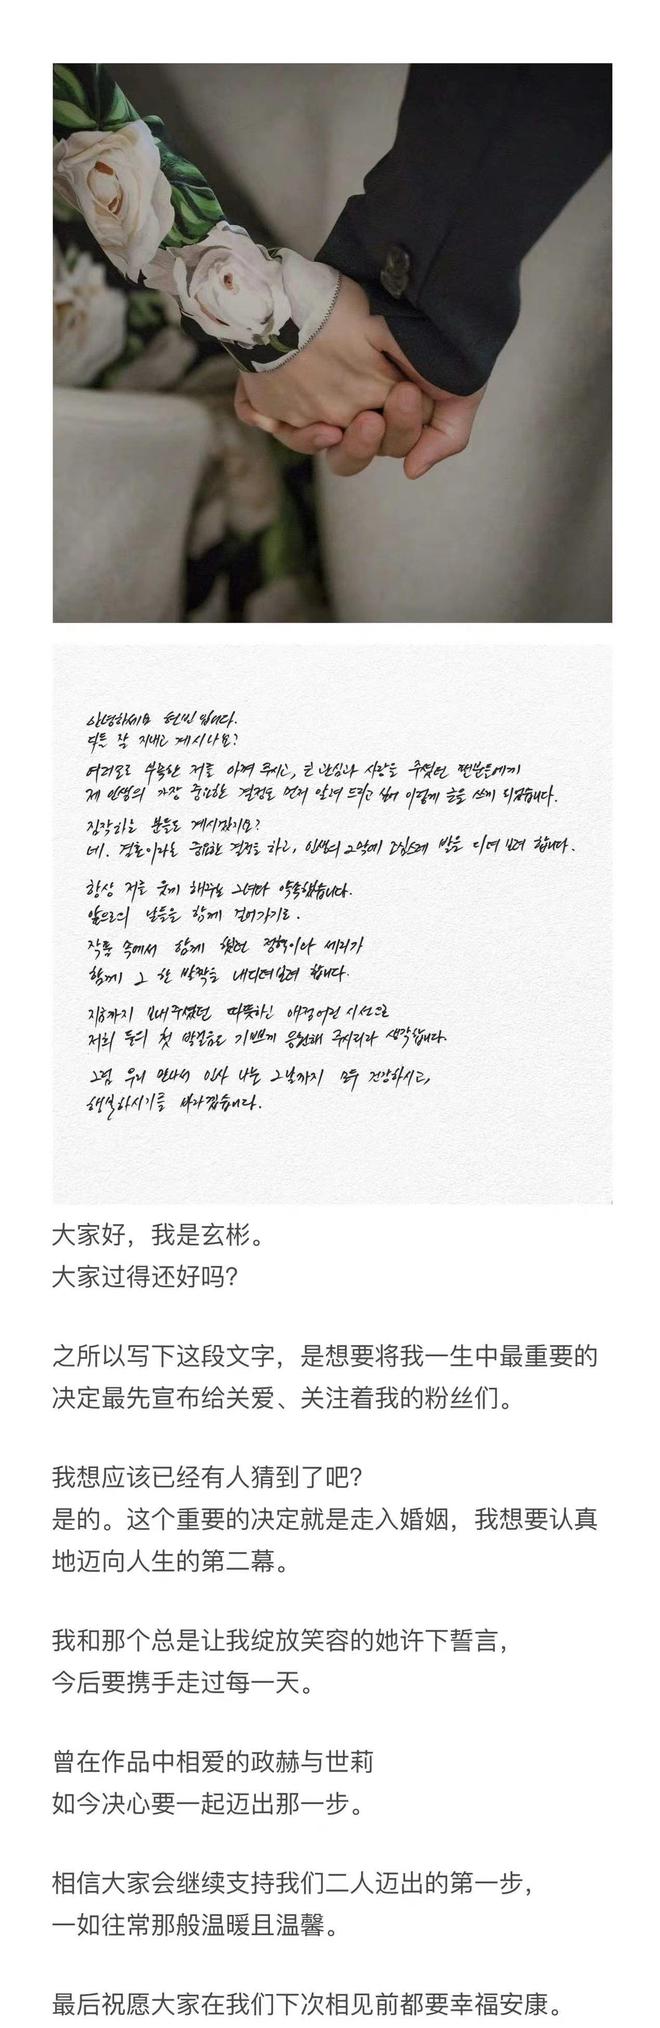 안녕하세요 현빈입니다.
다들 잘 지내고 계시나요?
여러모로 부족한 저를 아껴 주시고, 큰 관심과 사랑을 주셨던 팬분들에게
제 인생의 가장 중요한 결정을 먼저 알려 드리고 싶어 이렇게 글을 쓰게 되었습니다.
짐작하는 분들도 계시겠지요?
네. 결혼이라는 중요한 결정을 하고, 인생의 2막에 조심스레 발을 디뎌 보려 합니다.
항상 저를 웃게 해주는 그녀와 약속했습니다.
앞으로의 날들을 함께 걸어가기로.
작품 속에서 함께 했던 정혁이와 세리가
함께 그 한 발짝을 내디뎌보려 합니다.
지금까지 보내주셨던 따뜻하고 애정어린 시선으로
저희 둘의 첫 발걸음도 기쁘게 응원해 주시리라 생각합니다.
그럼 우리 만나서 인사 나눌 그날까지 모두 건강하시고,
행복하시기를 바라겠습니다.
大家好，我是玄彬。
大家过得还好吗？
之所以写下这段文字，是想要将我一生中最重要的
决定最先宣布给关爱、关注着我的粉丝们。
我想应该已经有人猜到了吧？
是的。这个重要的决定就是走入婚姻，我想要认真
地迈向人生的第二幕。
我和那个总是让我绽放笑容的她许下誓言，
今后要携手走过每一天。
曾在作品中相爱的政赫与世莉
如今决心要一起迈出那一步。
相信大家会继续支持我们二人迈出的第一步，
一如往常那般温暖且温馨。
最后祝愿大家在我们下次相见前都要幸福安康。